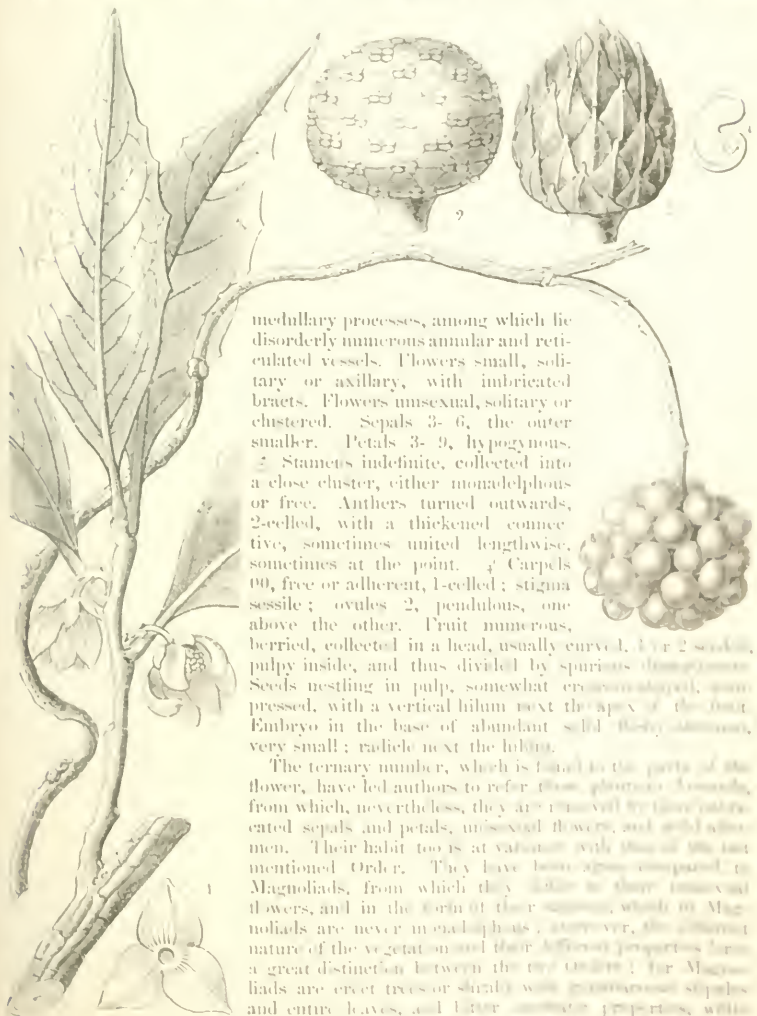 2
medullary processes, among which lie
disorderly numerous annular and reti-
culated vessels. Flowers small, soli-
tary or axillary, with imbricated
bracts. Flowers unisexual, solitary or
clustered. Sepals 3- 6, the outer
smaller. Petals 3- 9, hypogynous.
Stamens indefinite, collected into
a close cluster, either monadelphous
or free. Anthers turned outwards,
2-celled, with a thickened connec
tive, sometimes united lengthwise,
sometimes at the point. Carpels
00, free or adherent, 1-celled ; stigma
sessile ; ovules 2, pendulous, one
above the other. Fruit numerous,
berried, collected in a head, usually curved, 2
pulpy inside, and thus divided by spurious
Seeds nestling in pulp, somewhat
pressed, with a vertical hilum next the apex of the fruit.
Embryo in the base of abundant solid
very small ; radicle next the hilum.
The ternary number, which is found in the parts of the
flower, have led authors to refer
from which, nevertheless, they are
cated sepals and petals, unisexual flowers, and
men. Their habit too is at variance with that of the last
mentioned Order. They have been compared to
Magnoliads, from which they in their
flowers, and in the form of their which in Mag-
noliads are never the
nature of the vegetation and their different properties form
a great distinction between the two Orders ; for Magno
liads are erect trees or shrubs with stipules
and entire leaves, and properties, while
1